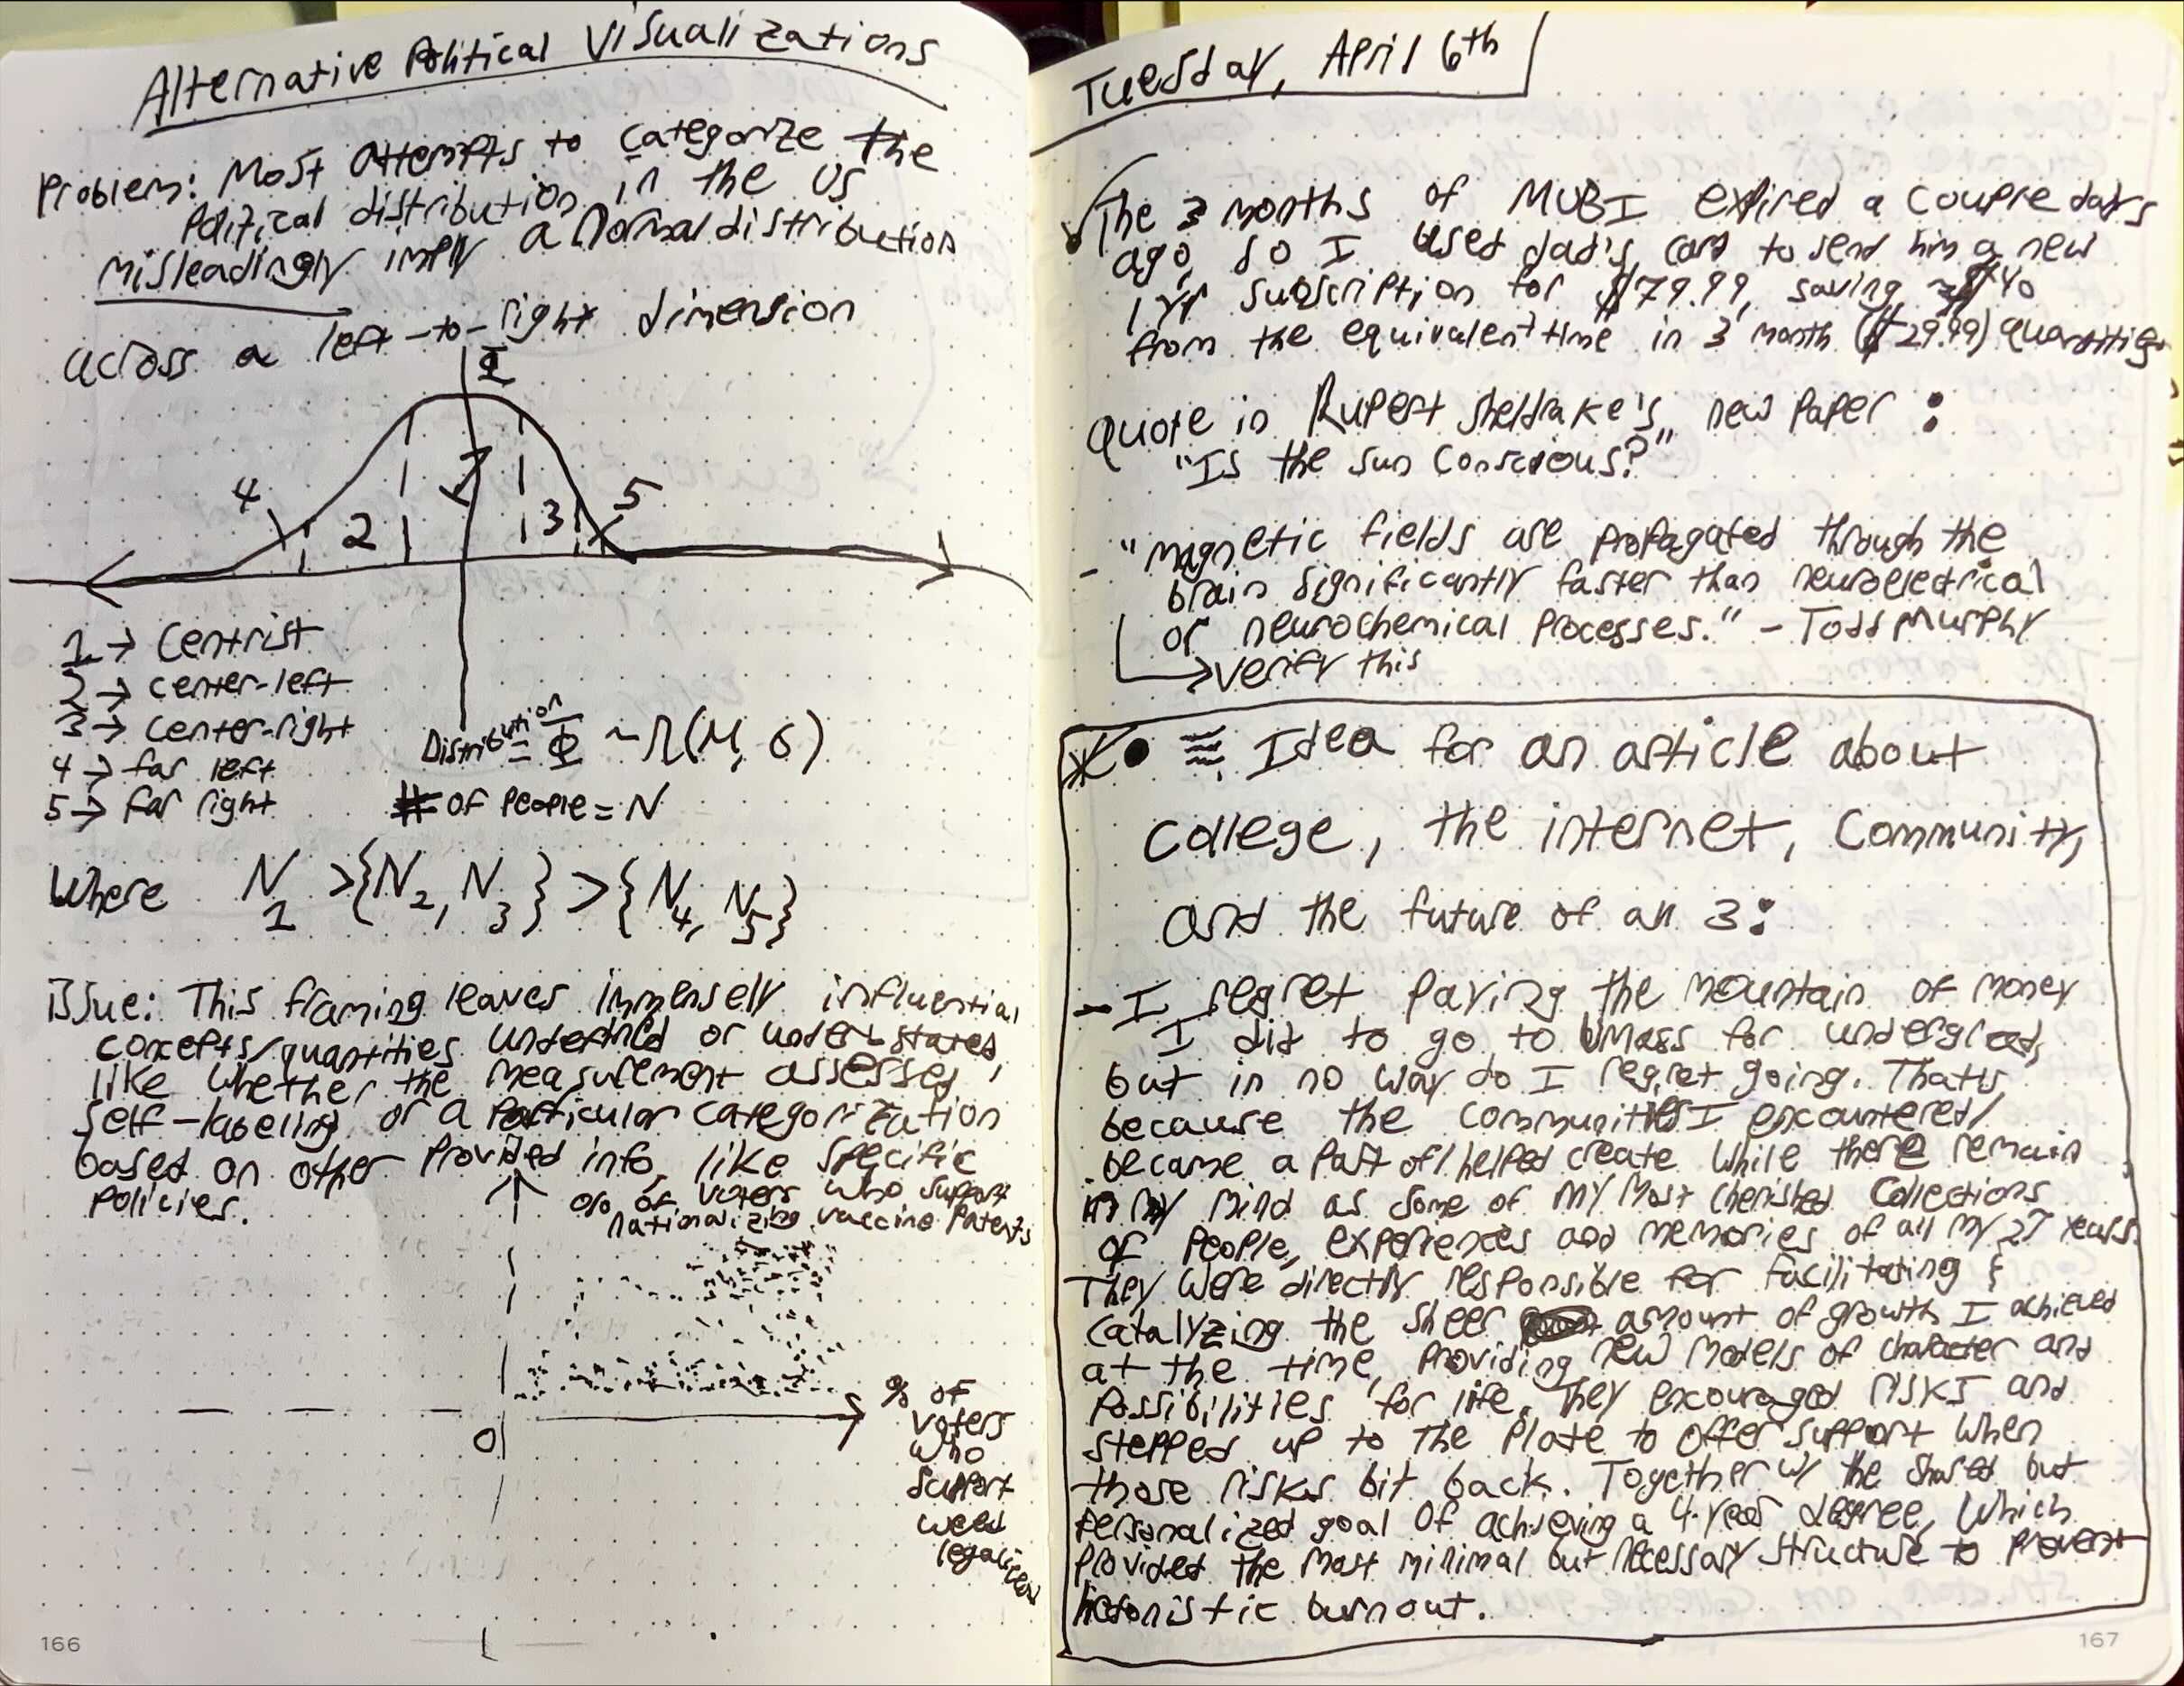 Alternative Political Visualizations
Problem: Most attempts to categorize the
political distribution in the US
misleadingly imply a normal distribution
across a left-to-right dimension
Φ
4
2
1
3
5
1 → Centrist
2 → center-left
3 → center-right
4 → far left
5 → far right
Distribution = Φ ~ N(μ, σ)
# of people = N
Where N1 > {N2, N3} > {N4, N5}
issue: This framing leaves immensely influential
concepts/quantities undefined or understated,
like whether the measurement assesses
self-labeling or a particular categorization
based on other provided info, like specific
policies.
% of voters who support
nationalizing vaccine patents
0
% of
voters
who
support
weed
166
Tuesday, April 6th
The 3 months of MUBI expired a couple days
ago, so I used dad's card to send him a new
1 yr subscription for $79.99, saving ≈$40
from the equivalent time in 3 month ($29.99) quantities
Quote in Rupert Sheldrake's new paper:
"Is the sun Conscious?"
- "Magnetic fields are propagated through the
brain significantly faster than neuroelectrical
or neurochemical processes." - Todd Murphy
→ verify this
Idea for an article about
college, the internet, community,
and the future of all 3:
- I regret paying the mountain of money
I did to go to UMass for undergrad,
but in no way do I regret going. That's
because the communities I encountered/
became a part of/helped create while there remain
in my mind as some of my most cherished collections
of people, experiences and memories of all my 27 years.
They were directly responsible for facilitating &
catalyzing the sheer amount of growth I achieved
at the time, providing new models of character and
possibilities for life. They encouraged risks and
stepped up to the plate to offer support when
those risks bit back. Together w/ the shared but
personalized goal of achieving a 4-year degree, which
provided the most minimal but necessary structure to prevent
hedonistic burnout.
167